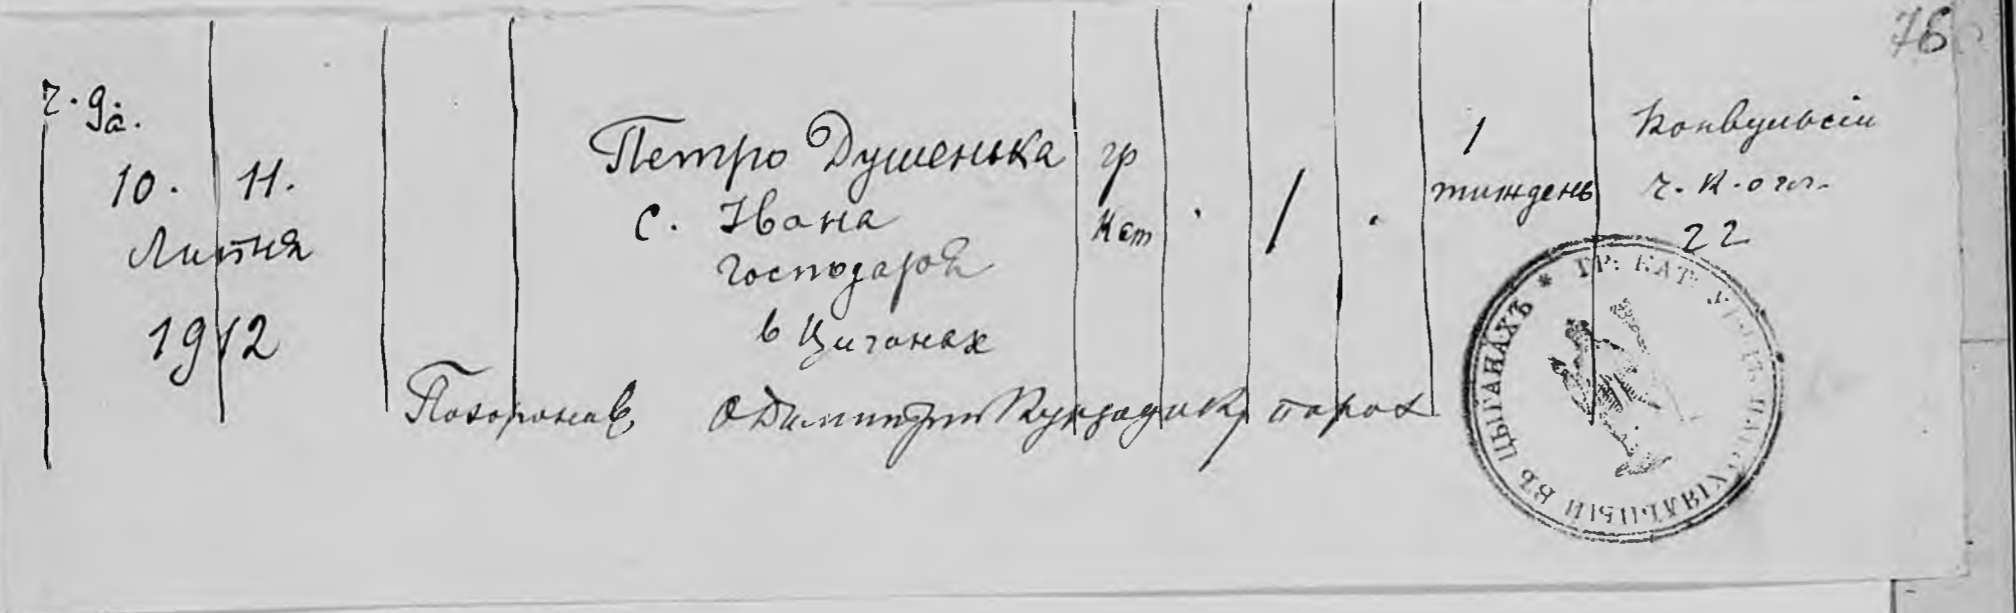 76
ч. 9а.
10. 11.
Липня
1912
Петро Душенька
с. Івана
господаря
в Циганах
гр
кат
1
тиждень
Конвульсіи
ч. к. огл.
22
Похоронив о Димитрий парох
* ГР: КАТ:
ВЪ ЦЫГАНАХЪ